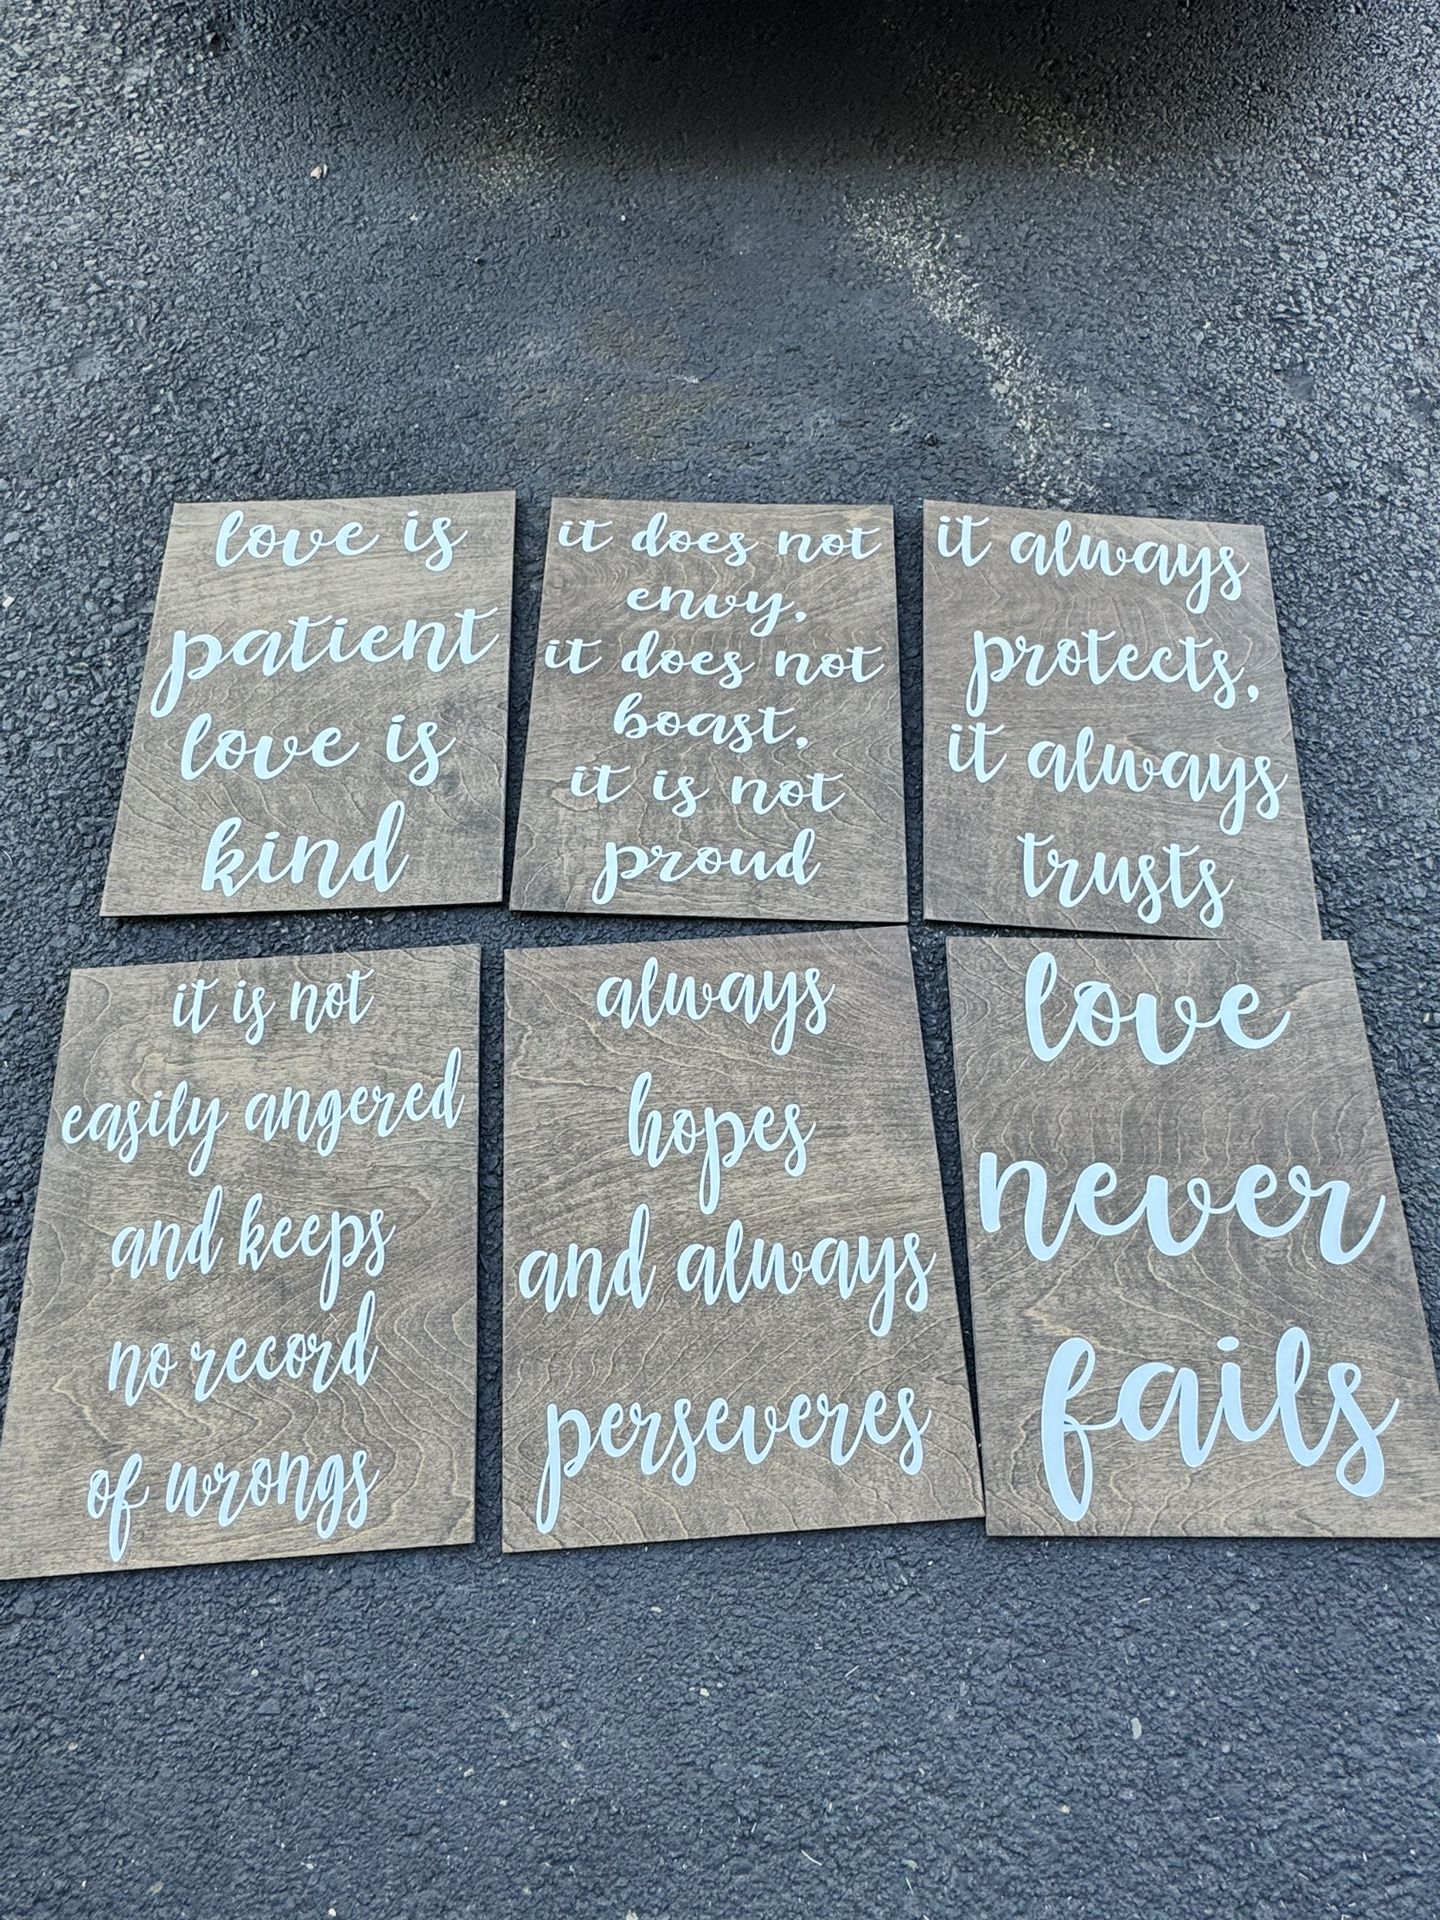 love is
patient
love is
kind
it does not
envy,
it does not
boast,
it is not
proud
it always
protects,
it always
trusts
it is not
easily angered
and keeps
no record
of wrongs
always
hopes
and always
perseveres
love
never
fails